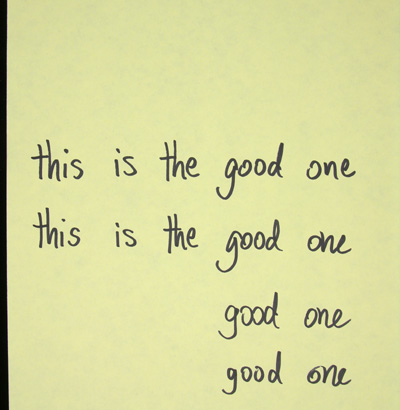 this is the good one
this is the good one
good one
good one